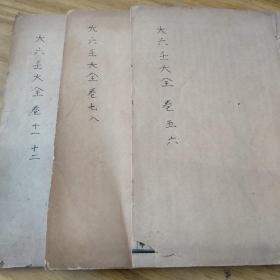 大六壬大全 卷五六
大六壬大全 卷七八
大六壬大全 卷十一十二